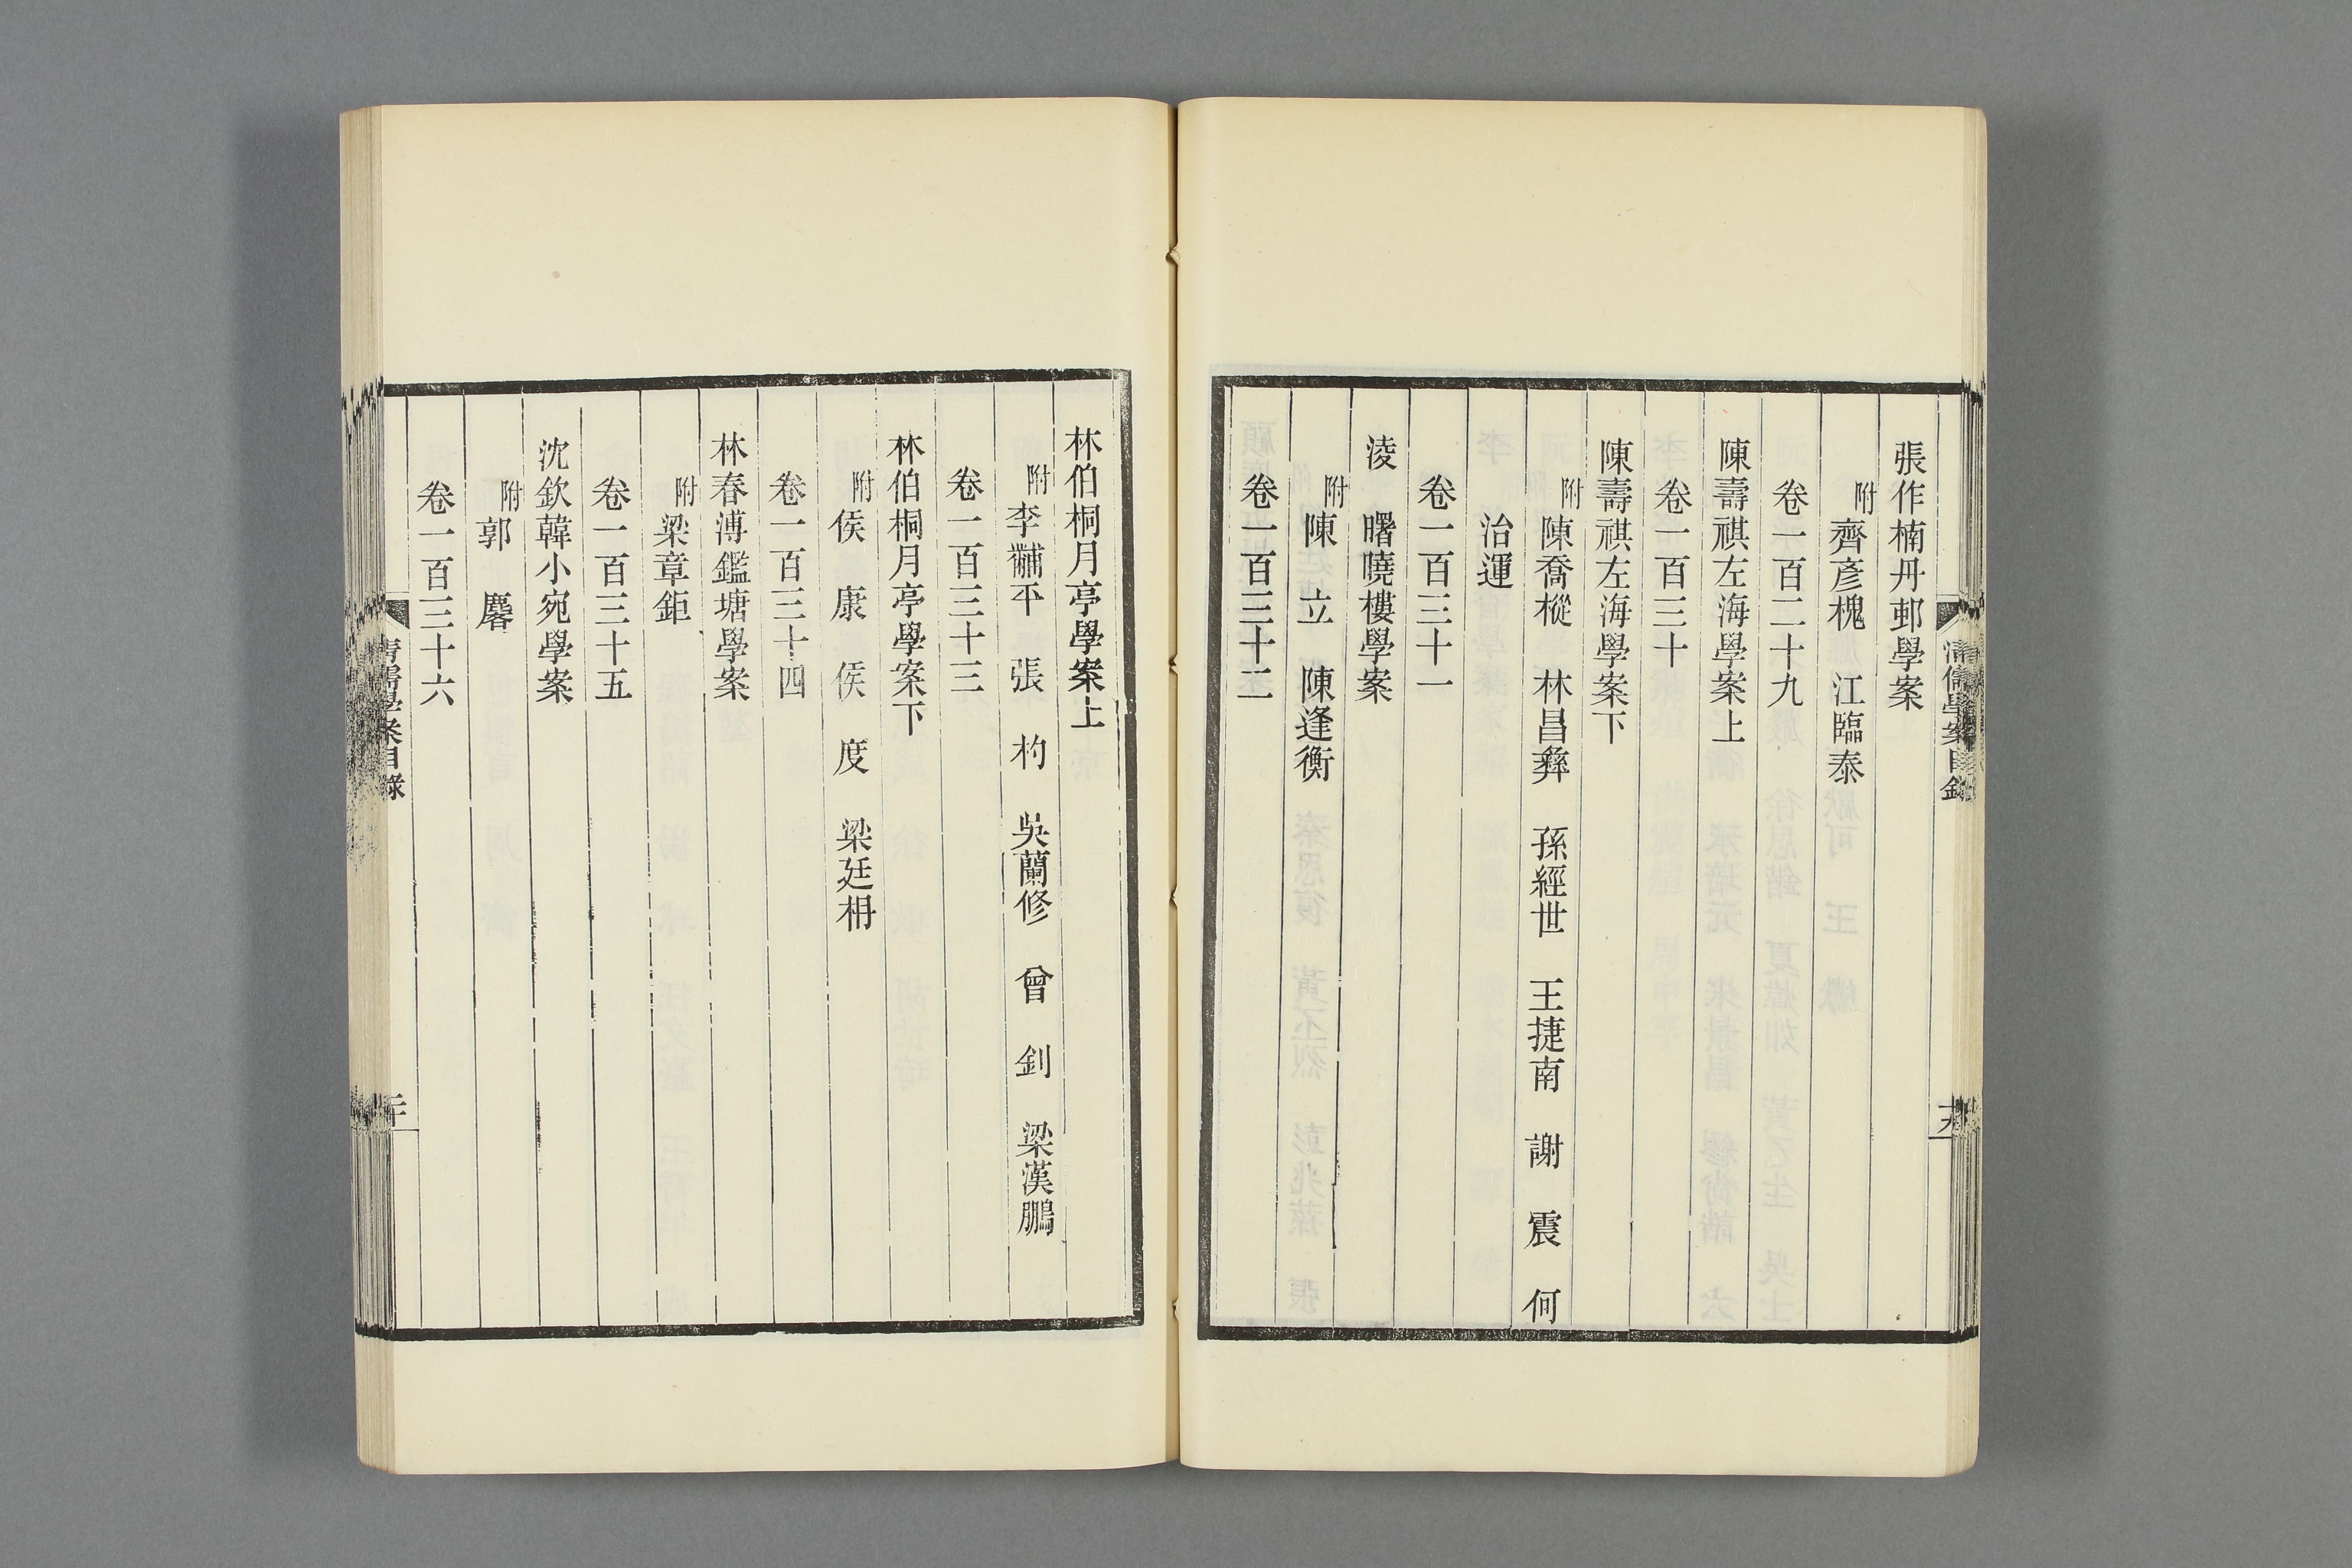 清儒學案目錄
張作楠丹邨學案
附齊彥槐　江臨泰
卷一百二十九
陳壽祺左海學案上
卷一百三十
陳壽祺左海學案下
附陳喬樅　林昌彝　孫經世　王捷南　謝　震　何
治運
卷一百三十一
淩　曙曉樓學案
附陳　立　陳逢衡
卷一百三十二
林伯桐月亭學案上
附李黼平　張　杓　吳蘭修　曾　釗　梁漢鵬
卷一百三十三
林伯桐月亭學案下
附侯　康　侯　度　梁廷枏
卷一百三十四
林春溥鑑塘學案
附梁章鉅
卷一百三十五
沈欽韓小宛學案
附郭　麐
卷一百三十六
清儒學案目錄
二十